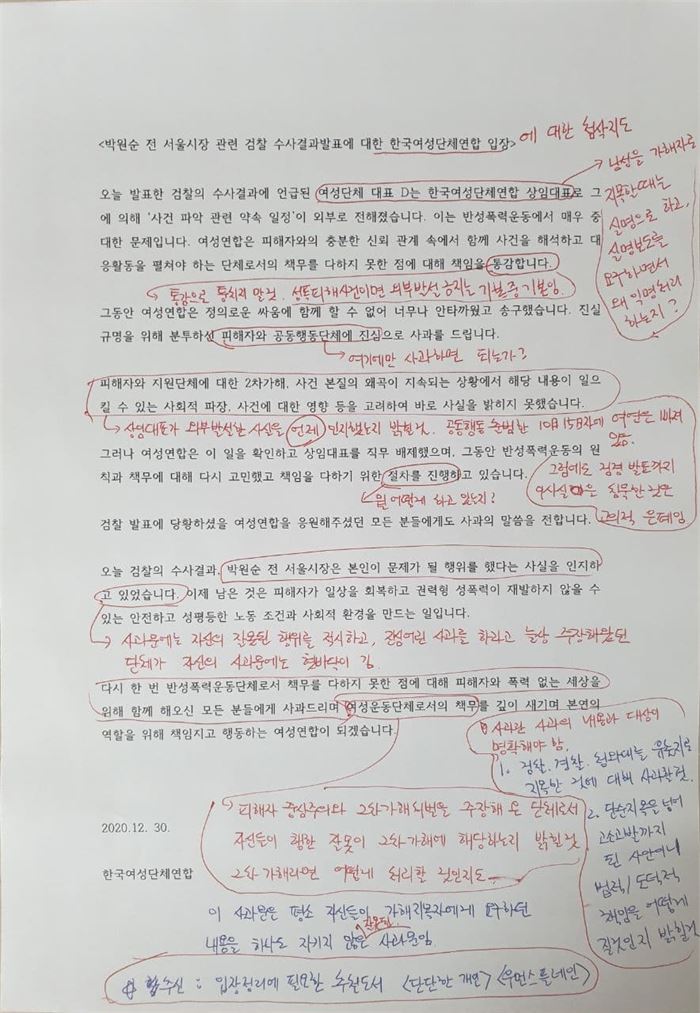 <박원순 전 서울시장 관련 검찰 수사결과발표에 대한 한국여성단체연합 입장> 에 대한 첨삭지도
오늘 발표한 검찰의 수사결과에 언급된 여성단체 대표 D는 한국여성단체연합 상임대표로 그
에 의해 '사건 파악 관련 약속 일정'이 외부로 전해졌습니다. 이는 반성폭력운동에서 매우 중
대한 문제입니다. 여성연합은 피해자와의 충분한 신뢰 관계 속에서 함께 사건을 해석하고 대
응활동을 펼쳐야 하는 단체로서의 책무를 다하지 못한 점에 대해 책임을 통감합니다.
남성을 가해자로
지목할때는
실명으로 하고,
실명보도를
요구하면서
왜 익명처리
하는지?
통감으로 퉁치지 말것. 성폭피해사건이면 외부발설 금지는 기본중 기본임.
그동안 여성연합은 정의로운 싸움에 함께 할 수 없어 너무나 안타까웠고 송구했습니다. 진실
규명을 위해 분투하신 피해자와 공동행동단체에 진심으로 사과를 드립니다.
여기에만 사과하면 되는가?
피해자와 지원단체에 대한 2차가해, 사건 본질의 왜곡이 지속되는 상황에서 해당 내용이 일으
킬 수 있는 사회적 파장, 사건에 대한 영향 등을 고려하여 바로 사실을 밝히지 못했습니다.
상임대표가 외부발설한 사실을 언제 인지했는지 밝힐것. 공동행동 출범한 10월15일자에 여연은 빠져
있음.
그럼에도 검경 발표까지
이사실은 침묵한 것은
고의적 은폐임
그러나 여성연합은 이 일을 확인하고 상임대표를 직무 배제했으며, 그동안 반성폭력운동의 원
칙과 책무에 대해 다시 고민했고 책임을 다하기 위한 절차를 진행하고 있습니다.
뭘 어떻게 하고 있는지?
검찰 발표에 당황하셨을 여성연합을 응원해주셨던 모든 분들에게도 사과의 말씀을 전합니다.
오늘 검찰의 수사결과, 박원순 전 서울시장은 본인이 문제가 될 행위를 했다는 사실을 인지하
고 있었습니다. 이제 남은 것은 피해자가 일상을 회복하고 권력형 성폭력이 재발하지 않을 수
있는 안전하고 성평등한 노동 조건과 사회적 환경을 만드는 일입니다.
사과문에는 자신의 잘못된 행위를 적시하고, 진정어린 사과를 하라고 늘상 주장해왔던
단체가 자신의 사과문에는 헛바닥이 김.
다시 한 번 반성폭력운동단체로서 책무를 다하지 못한 점에 대해 피해자와 폭력 없는 세상을
위해 함께 해오신 모든 분들에게 사과드리며 여성운동단체로서의 책무를 깊이 새기며 본연의
역할을 위해 책임지고 행동하는 여성연합이 되겠습니다.
사과란 사과의 내용과 대상이
명확해야 함.
1. 검찰. 경찰. 청와대를 유출자로
지목한 것에 대해 사과할것.
2. 단순지목을 넘어
고소고발까지
된 사안이니
법적/도덕적
책임을 어떻게
질것인지 밝힐것
피해자 중심주의와 2차가해처벌을 주장해 온 단체로서
자신들이 행한 잘못이 2차가해에 해당하는지 밝힐것
2차가해라면 어떻게 처리할 것인지도
2020. 12. 30.
한국여성단체연합
이 사과문은 평소 자신들이 가해지목자에게 요구하던
내용을 하나도 지키지 않은 잘못된 사과문임.
수신 : 입장정리에 필요한 추천도서 <단단한 개인> <우먼스플레인>